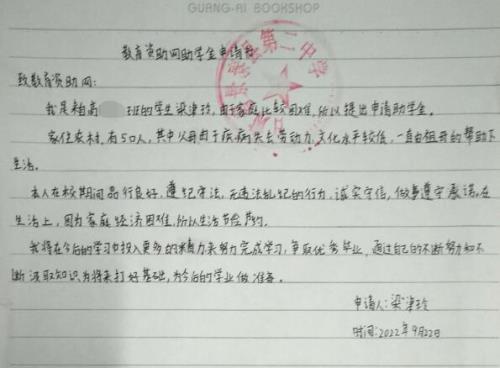 GUANG-AI BOOKSHOP
教育资助网助学金申请书
致教育资助网:
我是来自高 班的学生梁津玲,由于家庭比较困难,所以提出申请助学金。
家住农村,有50人,其中父母由于疾病失去劳动力,文化水平较低,一直由祖哥的帮助下
生活。
本人在校期间品行良好,遵纪守法,无违法乱纪的行为,诚实守信,做事遵守承诺。在
生活上,因为家庭经济困难,所以生活节俭
我将在今后的学习中投入更多的精力来努力完成学习,争取优秀毕业,通过自己的不断努力和不
断汲取知识为将来打好基础,为今后的学业做准备。
申请人:梁津玲
时间:2022年9月22日
县第二中学